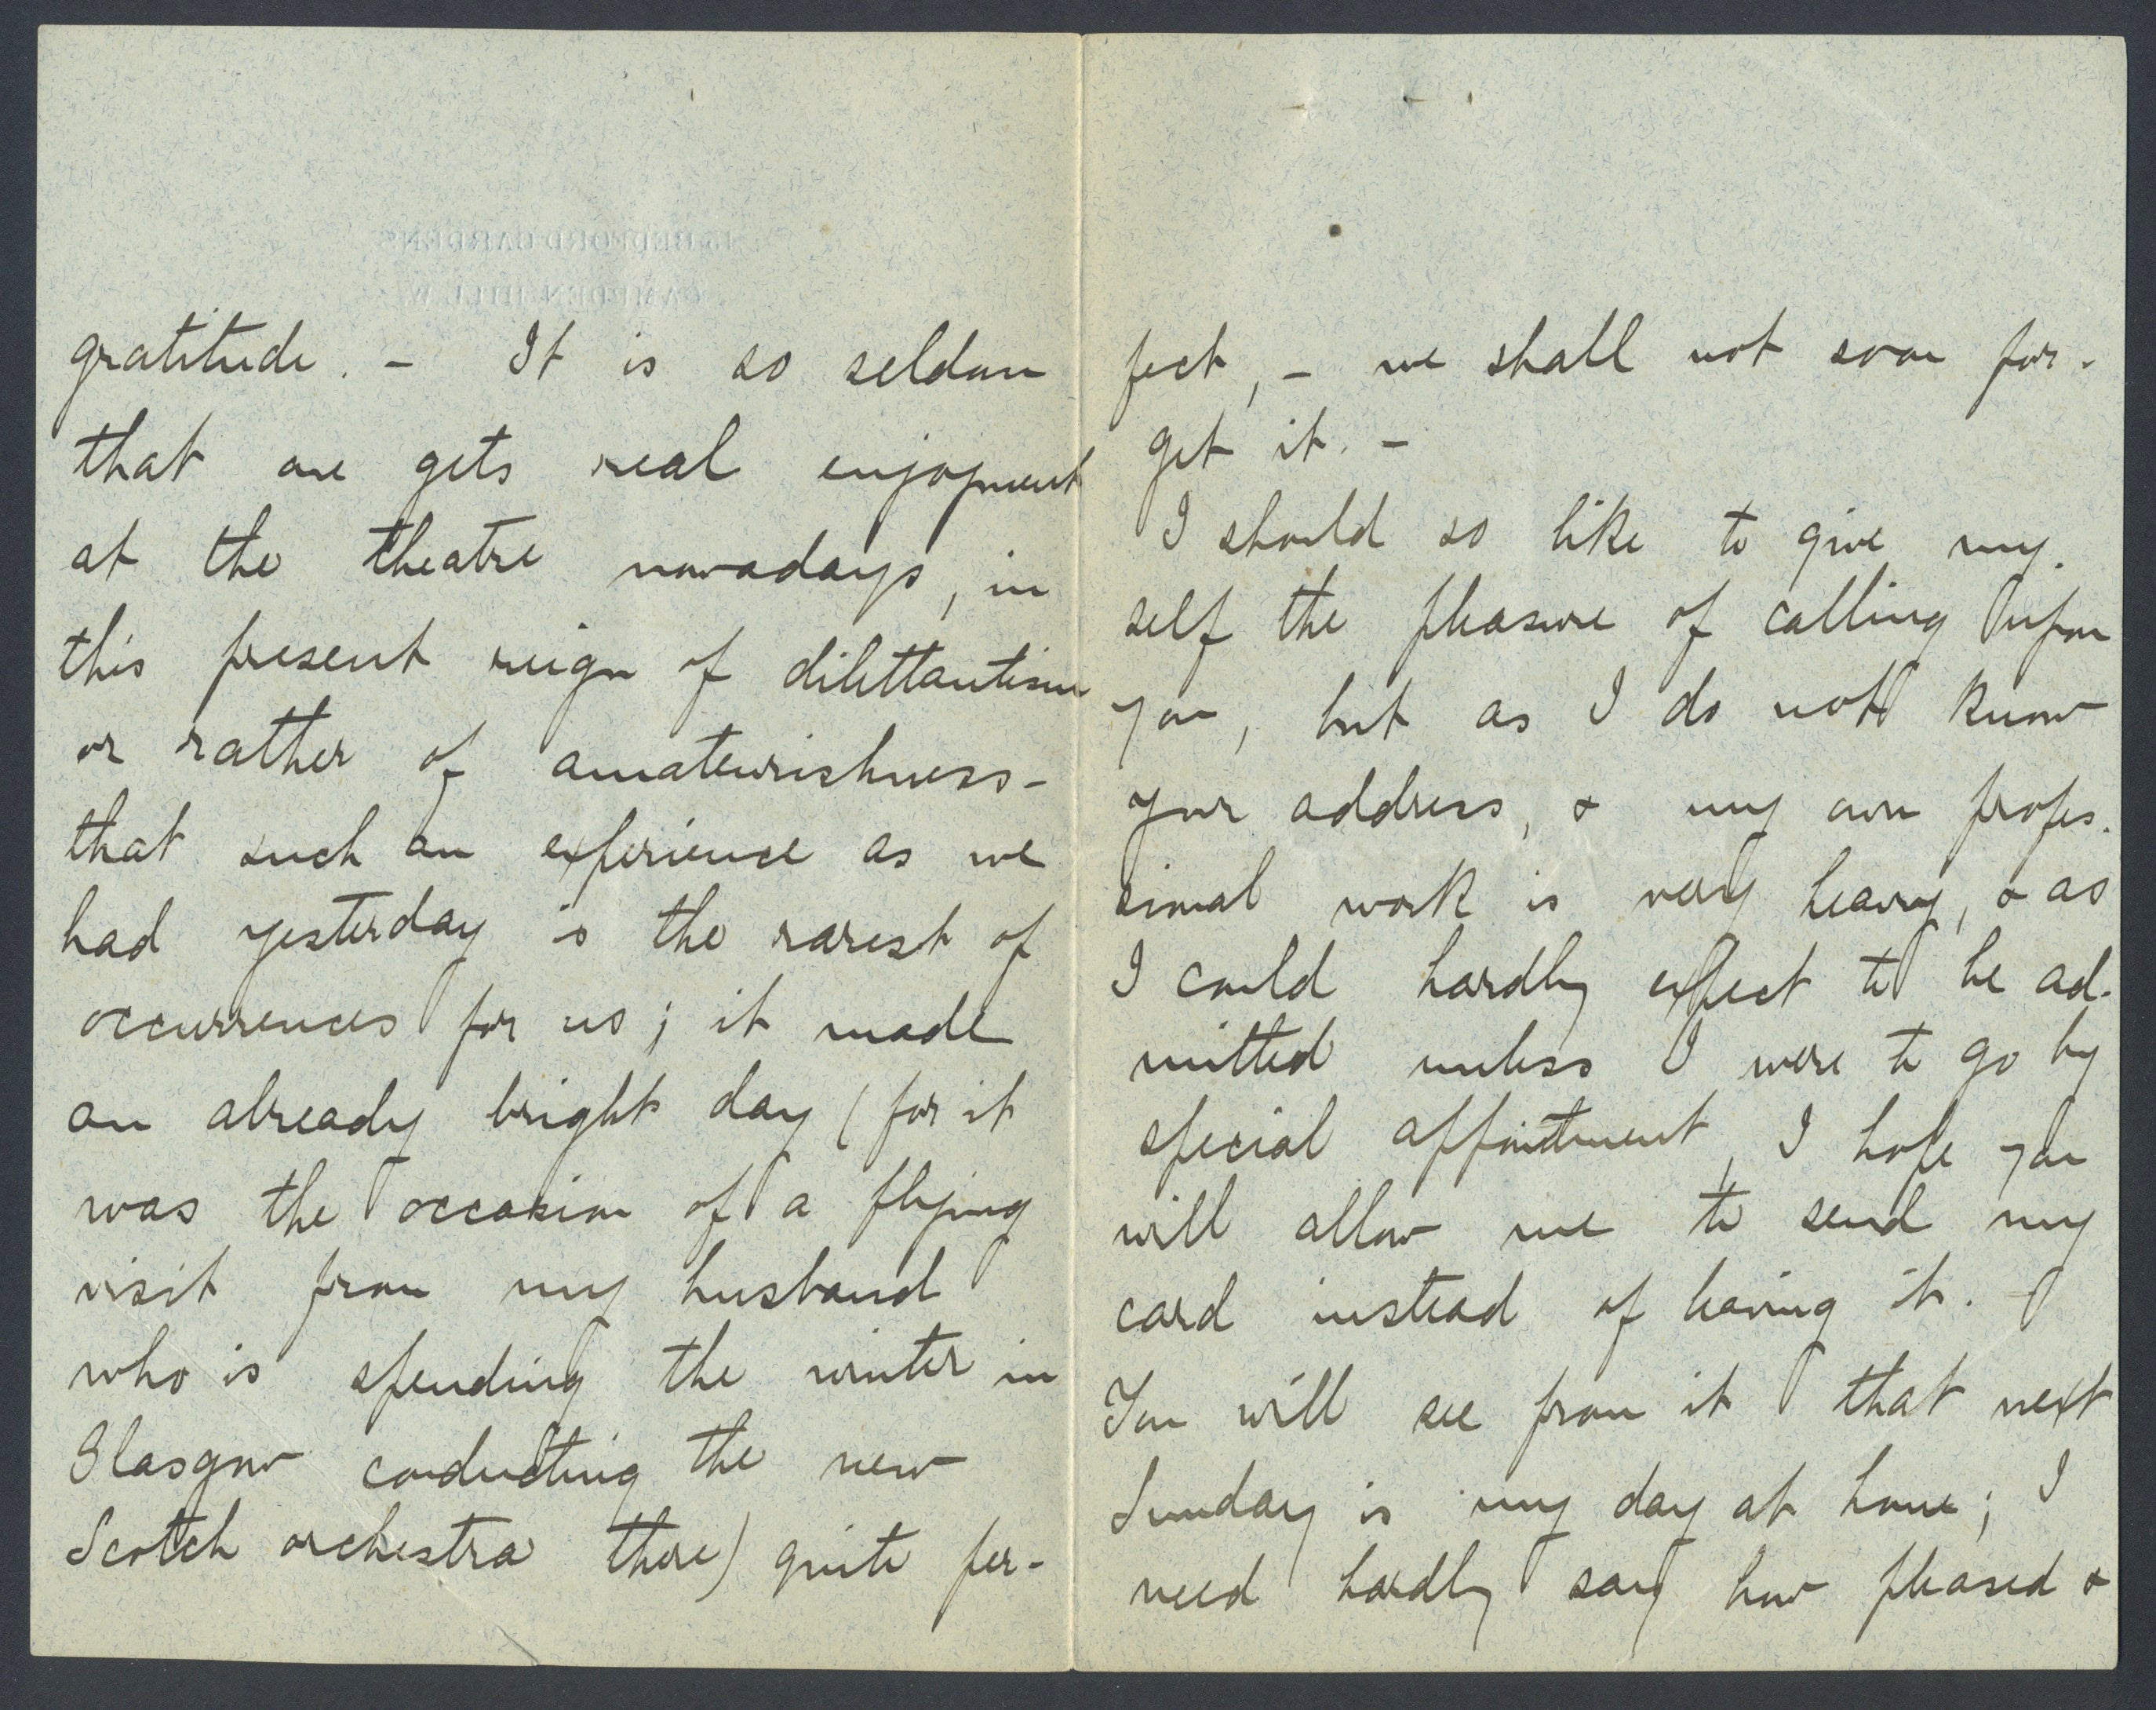 15 BEDFORD GARDENS
CAMPDEN HILL. W.
gratitude. – It is so seldom
that one gets real enjoyment
at the theatre nowadays, in
this present reign of dilettantism
or rather of amateurishness –
that such an experience as we
had yesterday is the rarest of
occurrences for us; it made
an already bright day (for it
was the occasion of a flying
visit from my husband
who is spending the winter in
Glasgow conducting the new
Scotch orchestra there) quite per-
fect, – we shall not soon for-
get it. –
I should so like to give my-
self the pleasure of calling upon
you, but as I do not know
your address, & my own profes-
sional work is very heavy, & as
I could hardly expect to be ad-
mitted unless I were to go by
special appointment, I hope you
will allow me to send my
card instead of leaving it. –
You will see from it that next
Sunday is my day at home; I
need hardly say how pleased &